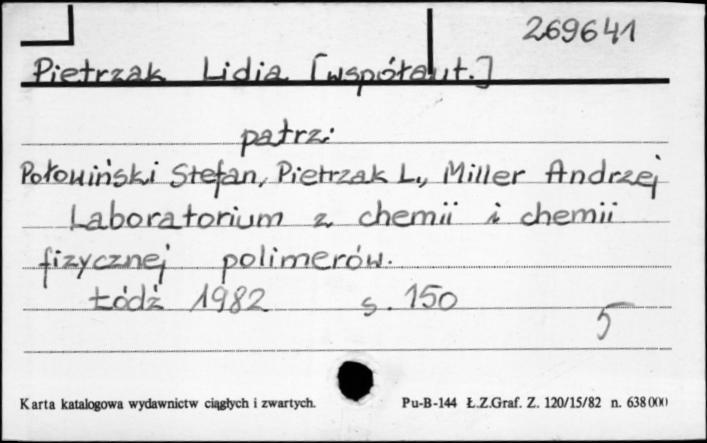 269641
Pietrzak Lidia [współaut.]
patrz:
Połowiński Stefan, Pietrzak L., Miller Andrzej
Laboratorium z chemii i chemii
fizycznej polimerów.
Łódź 1982 s. 150
5
Karta katalogowa wydawnictw ciągłych i zwartych. Pu-B-144 Ł.Z.Graf. Z. 120/15/82 n. 638000